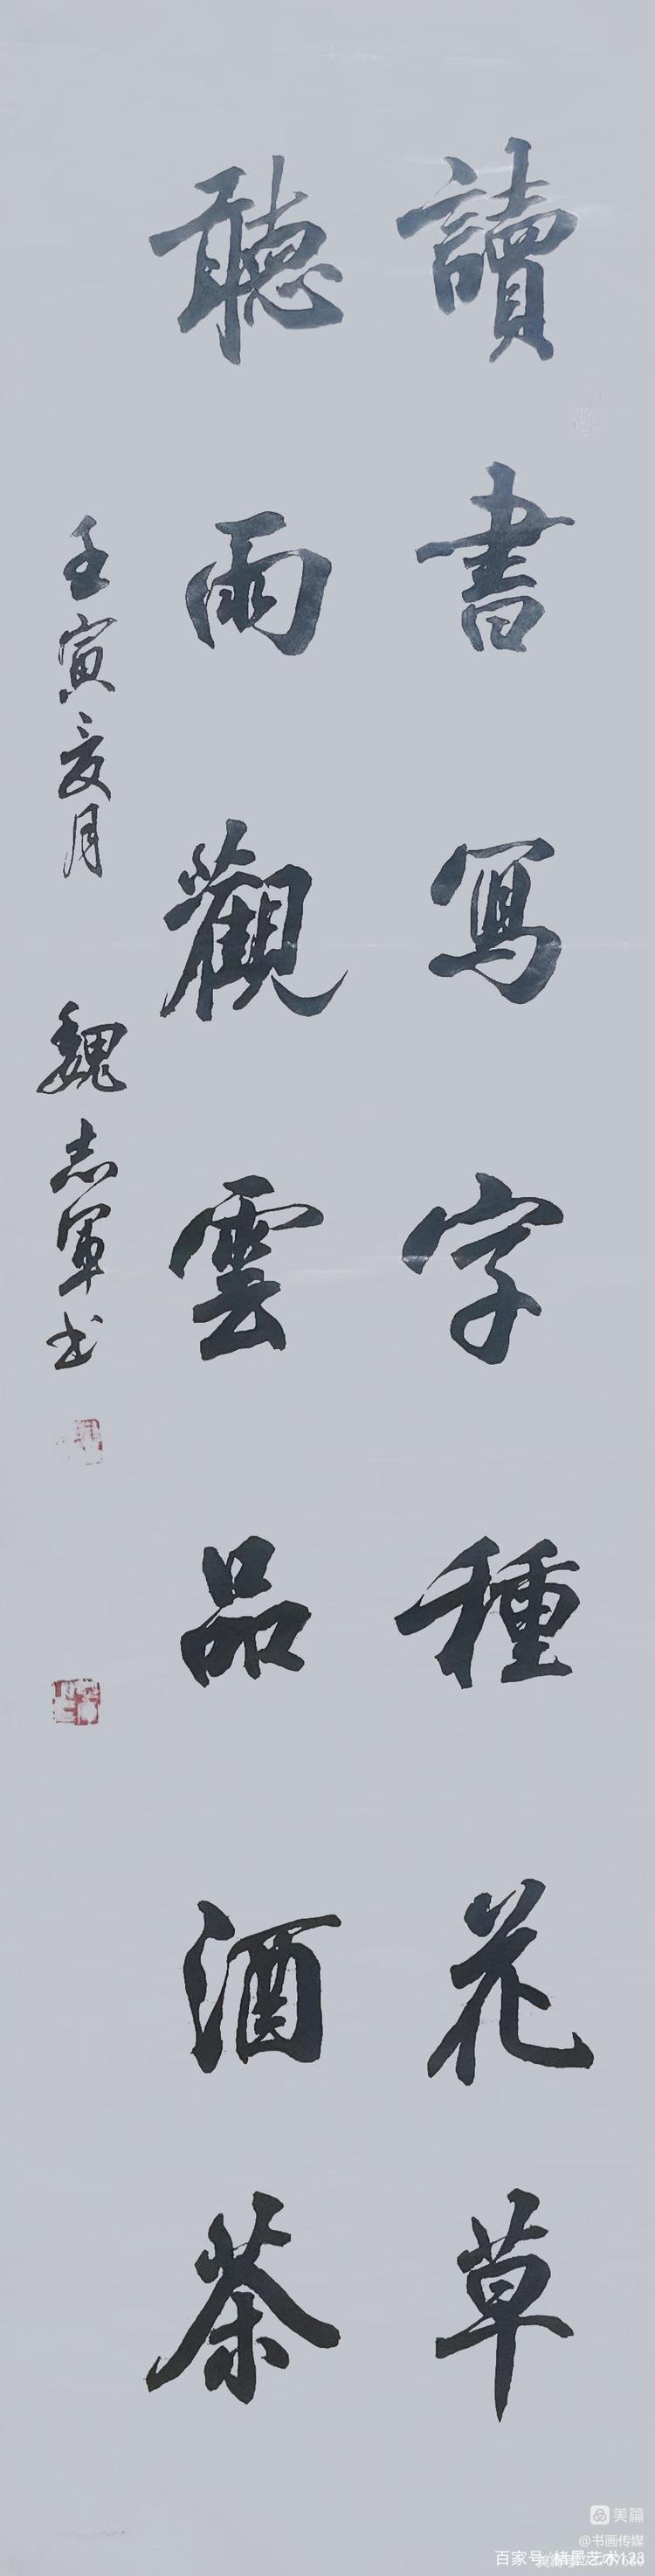 讀書寫字種花草
聽雨觀雲品酒茶
壬寅亥月 魏志軍书
美篇
@书画传媒
百家号/楮墨艺术123